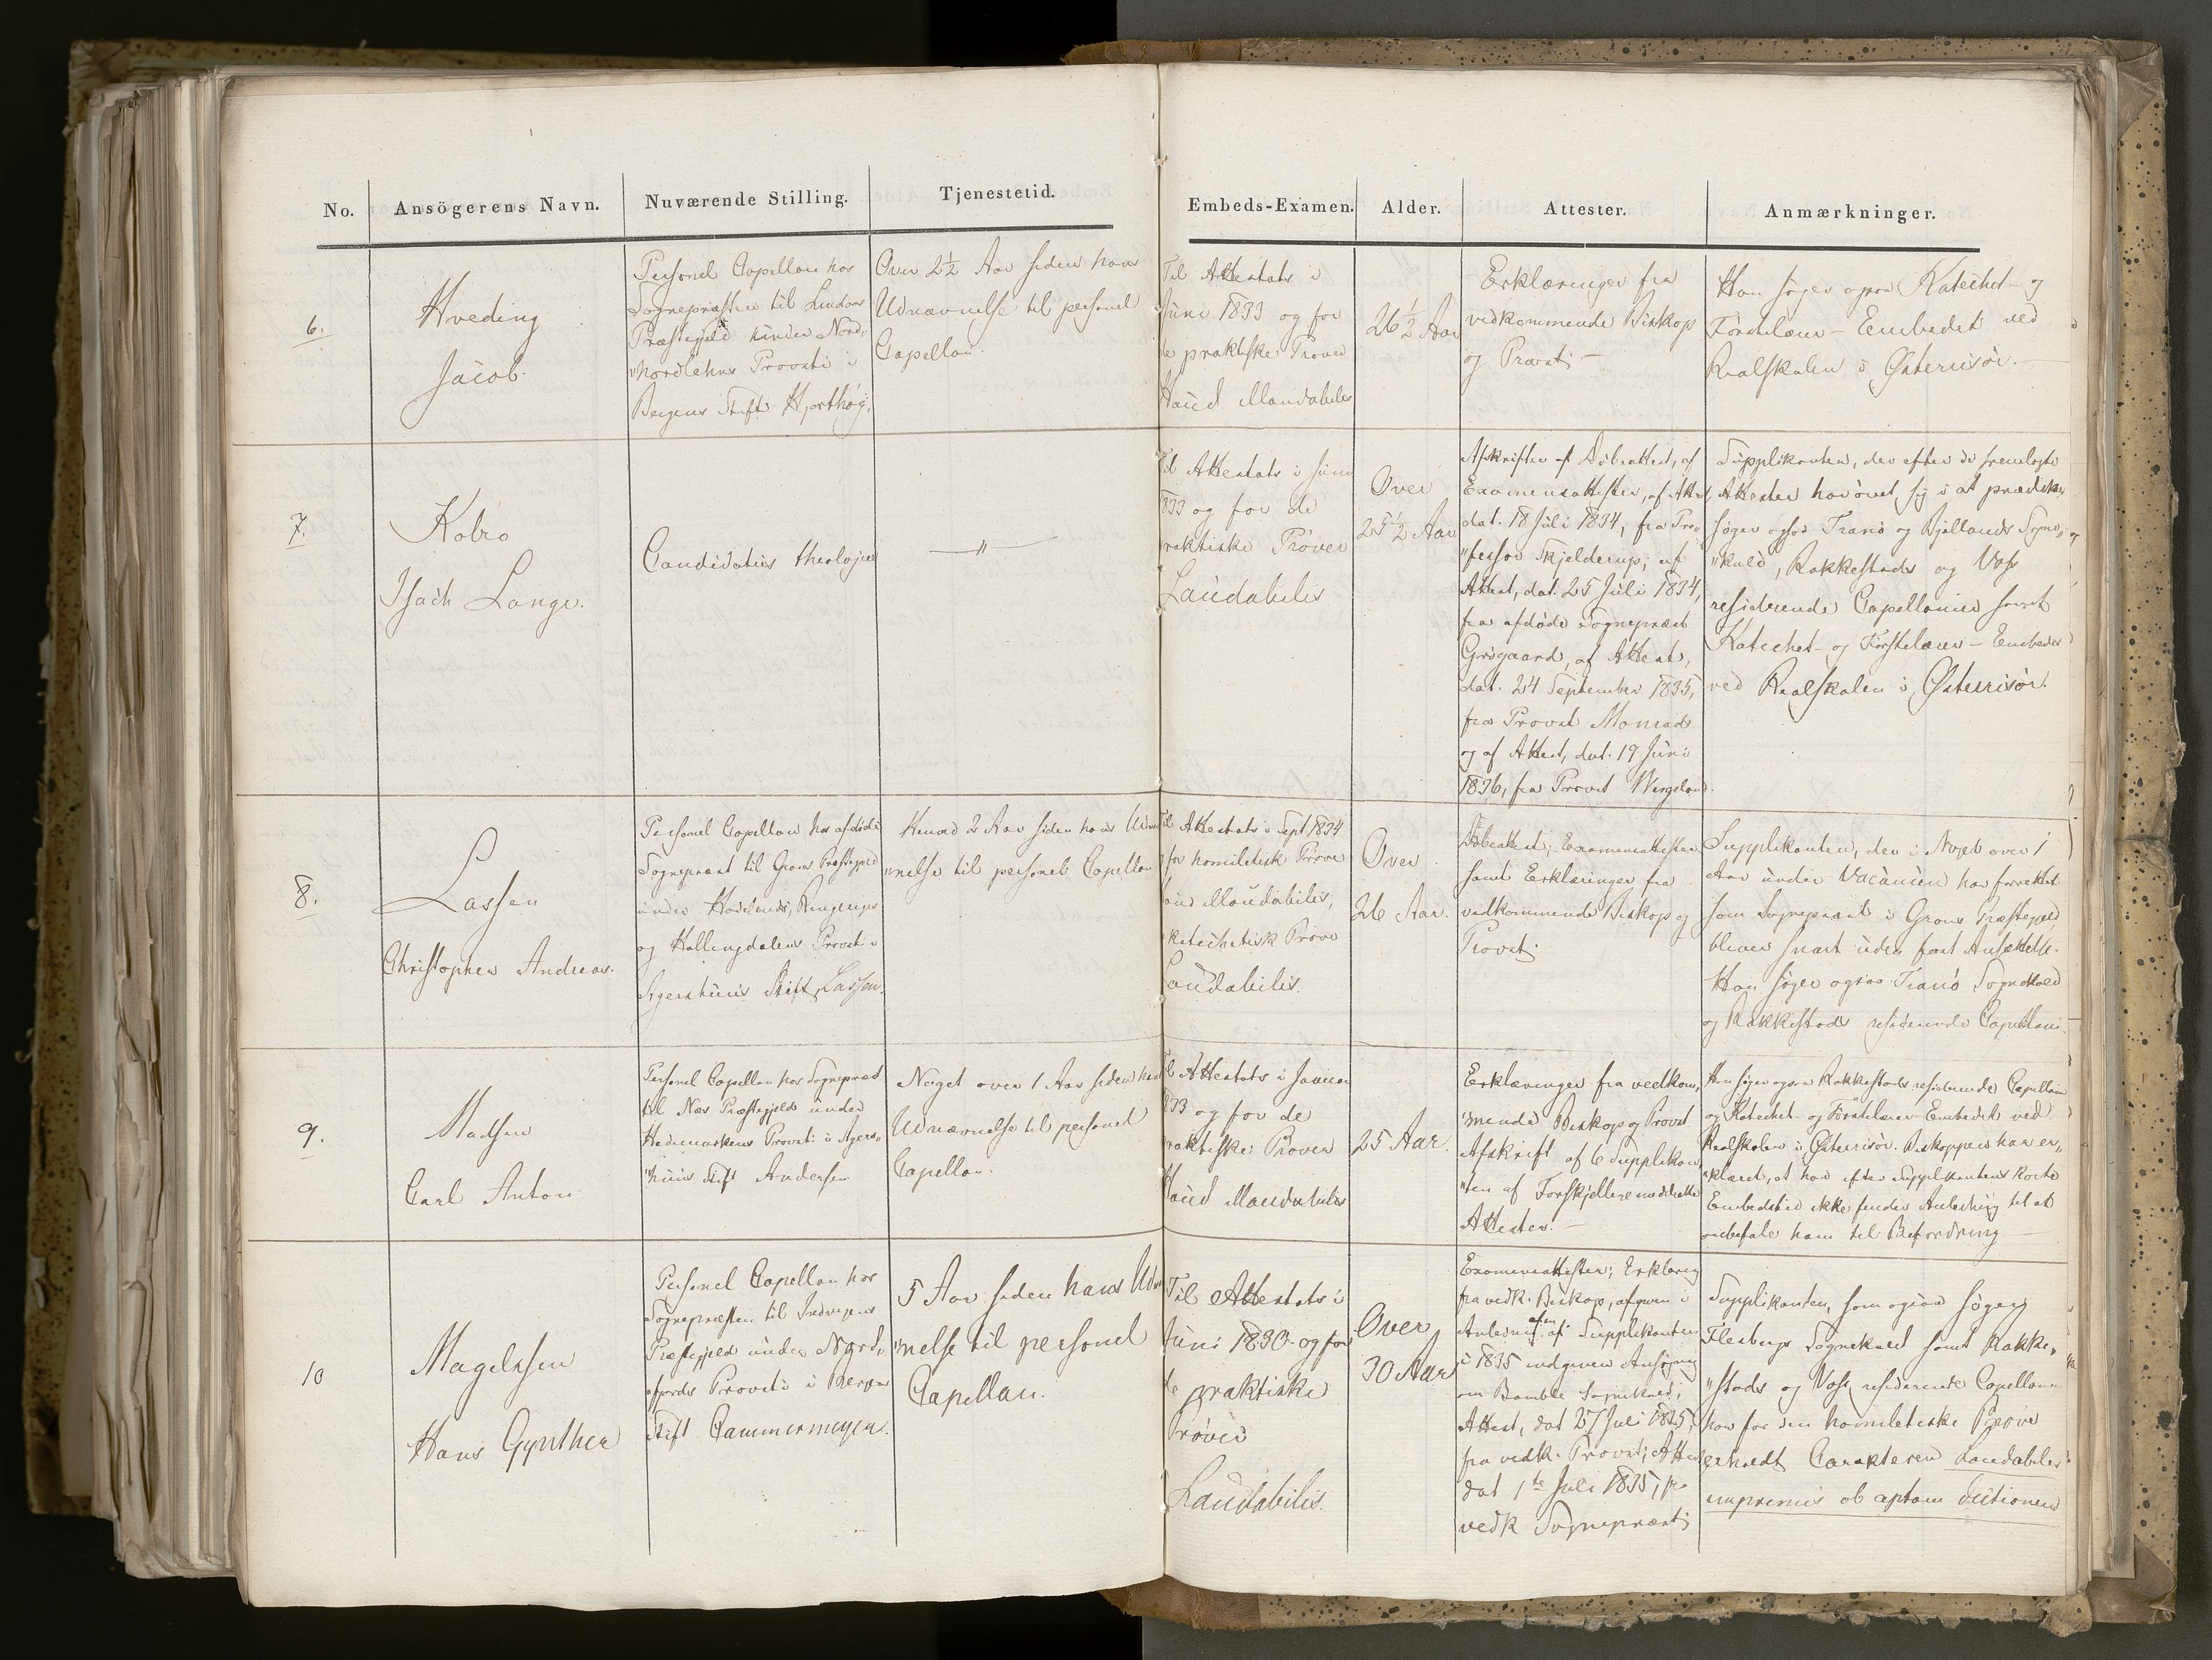 No.
Ansögerens Navn.
Nuværende Stilling.
Tjenestetid.
Embeds-Examen.
Alder.
Attester.
Anmærkninger.
6.
Hveding
Jacob.
Personel Capellan hos
Sognepræsten til Lindaas
Præstegjeld under Nord-
hordlehns Provsti i
Bergens Stift Hjorthøy.
Over 2½ Aar siden hans
Udnævnelse til personel
Capellan.
Til Attestats i
Juni 1833 og for
de praktiske Prøver
Haud illaudabilis
26½ Aar
Erklæringer fra
vedkommende Biskop
og Provst; —
Han søger ogsaa Katechet- og
Førstelærer-Embedet ved
Realskolen i Østerrisör. —
7.
Kobro
Isach Lange.
Candidatus theologiæ
— " —
Til Attestats i Juni
1833 og for de
praktiske Prøver
Laudabilis
Over
25½ Aar
Afskrifter af Døbeattest, af
Examensattester, af Attest,
dat. 18 Juli 1834, fra Pro-
"fessor Skjelderup; af
Attest, dat. 25 Juli 1834,
fra afdøde Sognepræst
Grøgaard, af Attest,
dat. 24 September 1835,
fra Provst Monrad
og af Attest, dat. 19 Juni
1836, fra Provst Wergeland.
Supplikanten, der efter de fremlagte
Attester har øvet sig i at prædike,
søger ogsaa Tranö og Bjellands Sogne-
"kald, Rakkestads og Voss
residerende Capellanier samt
Katechet- og Førstelærer-Embedet
ved Realskolen i Østerrisör.
8.
Lassen
Christopher Andreas.
Personel Capellan hos afdøde
Sognepræst til Grans Præstegjeld
under Hadelands, Ringeriges
og Hallingdalens Provsti i
Agershuus Stift Lassen.
Henved 2 Aar siden hans Udnæv-
"nelse til personel Capellan
Til Attestats i Sept 1834
og for homiletisk Prøve
Haud illaudabilis,
for katechetisk Prøve
Laudabilis.
Over
26 Aar.
Døbeattest; Examensattester
samt Erklæringer fra
vedkommende Biskop og
Provst;
Supplikanten, der i Noget over 1
Aar under Vacancen har forrettet
som Sognepræst i Grans Præstegjeld
bliver snart uden fast Ansættelse.
Han søger ogsaa Tranö Sognekald
og Rakkestads residerende Capellani.
9.
Madsen
Carl Anton
Personel Capellan hos Sognepræst
til Næs Præstegjeld under
Hedemarkens Provsti i Agers-
"huus Stift Andersen
Noget over 1 Aar siden hans
Udnævnelse til personel
Capellan.
Til Attestats i Januar
1833 og for de
praktiske Prøver
Haud illaudabilis
25 Aar.
Erklæringer fra vedkom-
"mende Biskop og Provst
Afskrift af 6 Supplikan-
"ten af Forskjellige meddeelte
Attester. —
Han søger ogsaa Rakkestads residerende Capellani
og Katechet- og Førstelærer-Embedet ved
Realskolen i Østerrisör. Biskoppen har er-
"klæret, at han efter Supplikantens korte
Embedstid ikke finder Anledning til at
anbefale ham til Befordring —
10
Magelssen
Hans Gynther
Personel Capellan hos
Sognepræsten til Indvigens
Præstegjeld under Nord-
"fjords Provsti i Bergens
Stift Cammermeyer.
5 Aar siden hans Udnæv-
"nelse til personel
Capellan.
Til Attestats i
Juni 1830 og for
de praktiske
Prøver
Laudabilis.
Over
30 Aar
Examensattester; Erklæring
fra vedk. Biskop, afgiven i
Anledning af en af Supplikanten
i 1835 indgiven Ansøgning
om Bamble Sognekald;
Attest, dat 27 Juli 1835,
fra vedk. Provst; Attest
dat 1ste Juli 1835, fra
vedk Sognepræst;
Supplikanten, som ogsaa søger
Flesbergs Sognekald samt Rakke-
"stads og Voss residerende Capellanier
har for den homiletiske Prøve
erholdt Carakteren Laudabilis
inprimis ob aptam dictionem